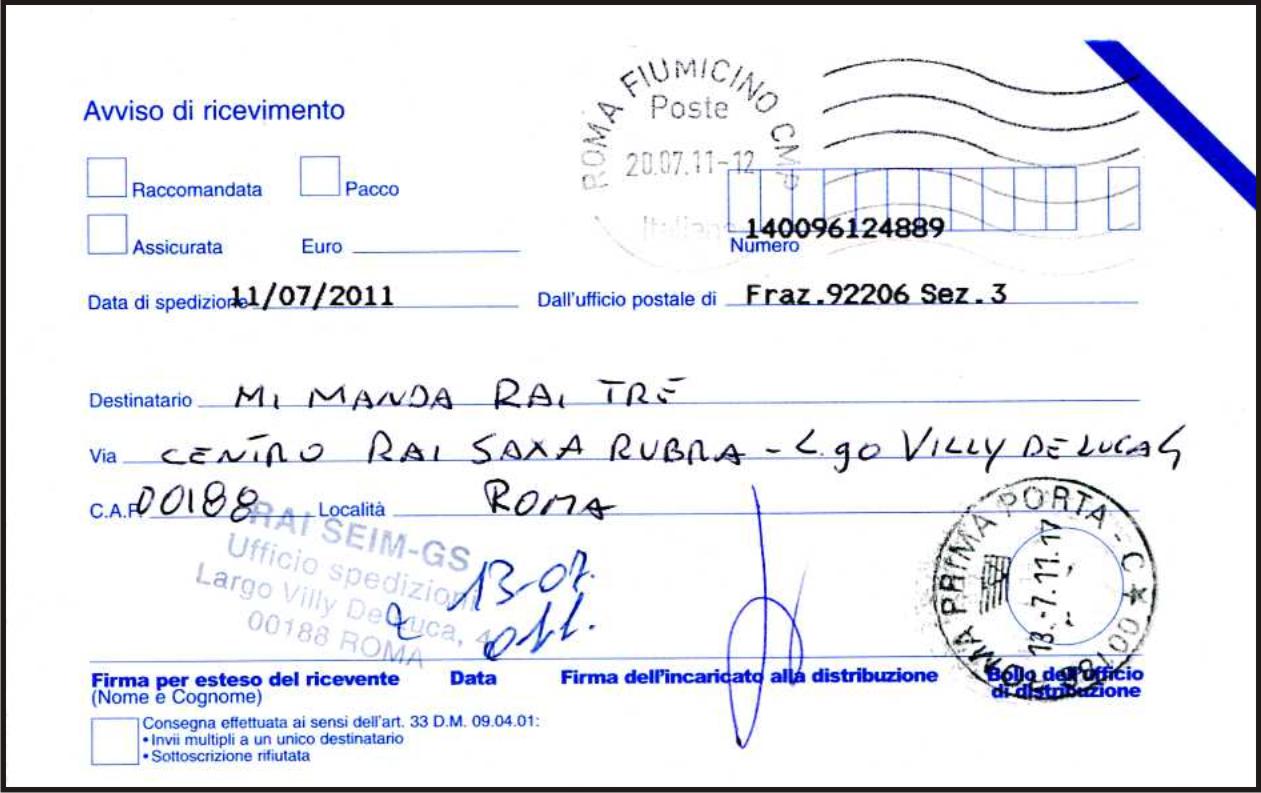 ROMA FIUMICINO CMP
Poste
20.07.11-12
Italiane
Avviso di ricevimento
Raccomandata
Pacco
Assicurata
Euro
140096124889
Numero
Data di spedizione 11/07/2011
Dall'ufficio postale di Fraz.92206 Sez.3
Destinatario MI MANDA RAI TRE
Via CENTRO RAI SAXA RUBRA - L.go VILLY DE LUCA 4
C.A.P. 00188 Località ROMA
RAI SEIM-GS
Ufficio spedizioni
Largo Villy De Luca, 4
00188 ROMA
13-07.
2011.
ROMA PRIMA PORTA - C ★ 00188
13.-7.11.17
Firma per esteso del ricevente
(Nome e Cognome)
Data
Firma dell'incaricato alla distribuzione
Bollo dell'ufficio
di distribuzione
Consegna effettuata ai sensi dell'art. 33 D.M. 09.04.01:
• Invii multipli a un unico destinatario
• Sottoscrizione rifiutata